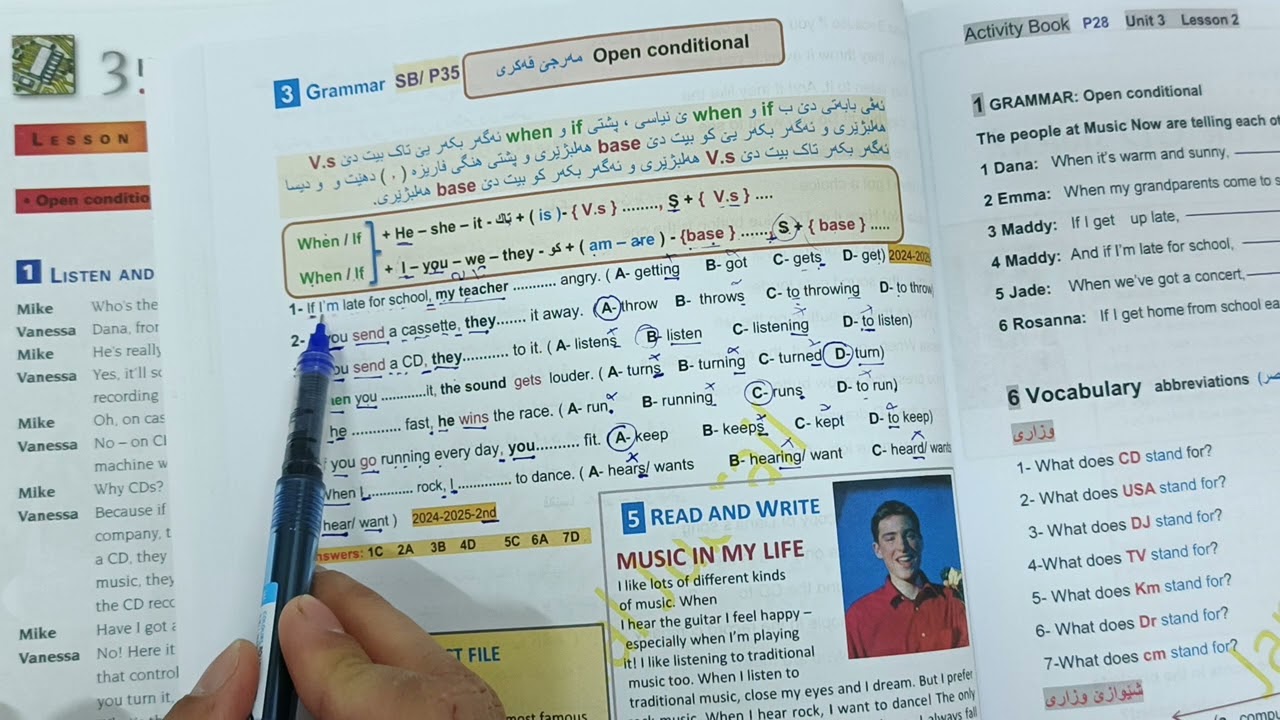 3
LESSON
• Open conditio
1 LISTEN AND
Mike Who's the
Vanessa Dana, fron
Mike He's really
Vanessa Yes, it'll so
recording
Mike Oh, on cas
Vanessa No – on CI
machine w
Mike Why CDs?
Vanessa Because if
company, t
a CD, they
music, they
the CD reco
Mike Have I got a
Vanessa No! Here it
that control
you turn it,
3 Grammar SB/ P35
مەرجێ ڤەکری Open conditional
ئەڤی بابەتی دێ ب if و when ێ نیاسی ، پشتی if و when ئەگەر بکەر یێ تاک بیت دێ V.s
هەلبژێری و ئەگەر بکەر یێ کو بیت دێ base هەلبژێری و پشتی هنگی فاریزە ( , ) دهێت و و دیسا
ئەگەر بکەر تاک بیت دێ V.s هەلبژێری و ئەگەر بکەر کو بیت دێ base هەلبژێری.
When / If + He – she – it - تاک + ( is )- { V.s } ........, S + { V.s } ....
When / If + I – you – we – they - کو + ( am – are ) - {base } ......, S + { base } .....
1- If I'm late for school, my teacher ........... angry. ( A- getting B- got C- gets D- get) 2024-202
2- you send a cassette, they....... it away. ( A- throw B- throws C- to throwing D- to throw
ou send a CD, they........... to it. ( A- listens B- listen C- listening D- to listen)
hen you ............it, the sound gets louder. ( A- turns B- turning C- turned D- turn)
he ............ fast, he wins the race. ( A- run B- running C- runs D- to run)
you go running every day, you.......... fit. ( A- keep B- keeps C- kept D- to keep)
When I.......... rock, I............... to dance. ( A- hears/ wants B- hearing/ want C- heard/ wants
hear/ want ) 2024-2025-2nd
nswers: 1C 2A 3B 4D 5C 6A 7D
T FILE
most famous
5 READ AND WRITE
MUSIC IN MY LIFE
I like lots of different kinds
of music. When
I hear the guitar I feel happy –
especially when I'm playing
it! I like listening to traditional
music too. When I listen to
traditional music, close my eyes and I dream. But I prefer
rock music. When I hear rock, I want to dance! The only
I always fall
Activity Book P28 Unit 3 Lesson 2
1 GRAMMAR: Open conditional
The people at Music Now are telling each ot
1 Dana: When it's warm and sunny,
2 Emma: When my grandparents come to s
3 Maddy: If I get up late,
4 Maddy: And if I'm late for school,
5 Jade: When we've got a concert,
6 Rosanna: If I get home from school ea
6 Vocabulary abbreviations
وزاری
1- What does CD stand for?
2- What does USA stand for?
3- What does DJ stand for?
4-What does TV stand for?
5- What does Km stand for?
6- What does Dr stand for?
7-What does cm stand for?
شێوازێ وزاری